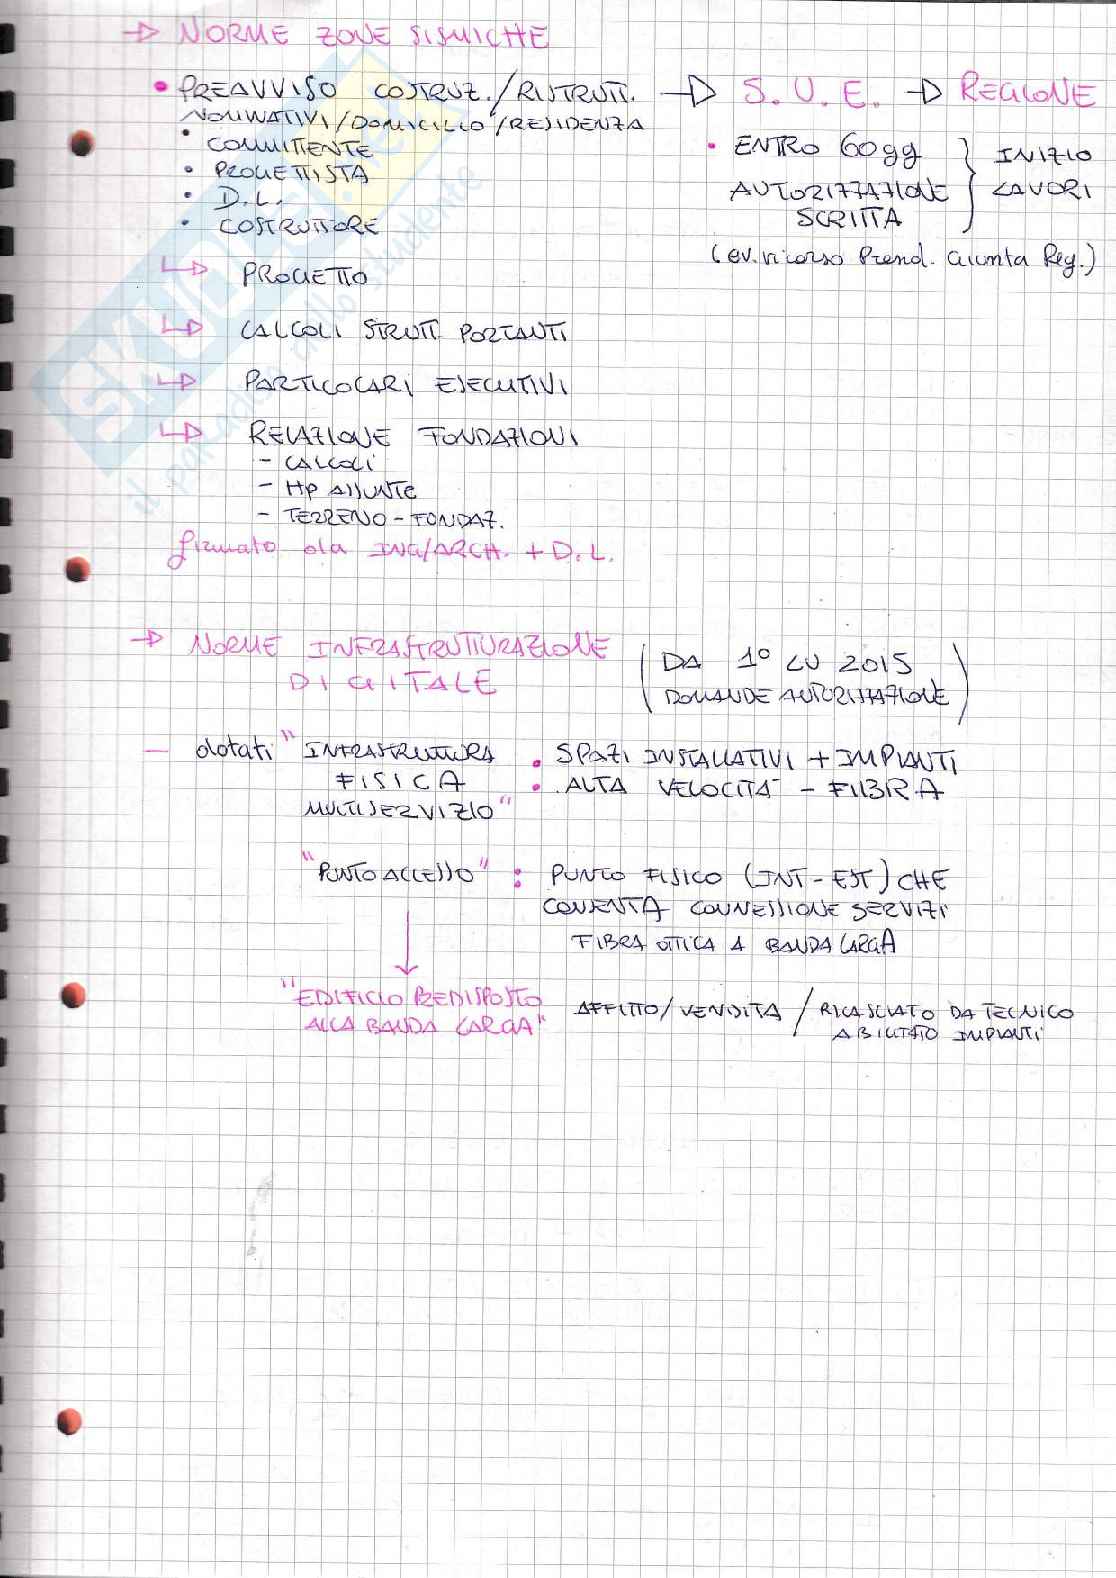 → NORME ZONE SISMICHE
• PREAVVISO COSTRUZ./RISTRUTT. → S.U.E. → REGIONE
NOMINATIVI/DOMICILIO/RESIDENZA
• COMMITTENTE
• PROGETTISTA
• D.L.
• COSTRUTTORE
• ENTRO 60gg } INIZIO
AUTORIZZAZIONE } LAVORI
SCRITTA
(ev. ricorso Presid. Giunta Reg.)
↳ PROGETTO
↳ CALCOLI STRUTT. PORTANTI
↳ PARTICOLARI ESECUTIVI
↳ RELAZIONE FONDAZIONI
- CALCOLI
- Hp ASSUNTE
- TERRENO - FONDAZ.
firmato da ING/ARCH. + D.L.
→ NORME INFRASTRUTTURAZIONE
DIGITALE
(DA 1° LU 2015
DOMANDE AUTORIZZAZIONE)
— dotati "INFRASTRUTTURA
FISICA
MULTISERVIZIO"
• SPAZI INSTALLATIVI + IMPIANTI
• ALTA VELOCITÀ - FIBRA
"PUNTO ACCESSO" : PUNTO FISICO (INT - EST) CHE
CONSENTA CONNESSIONE SERVIZI
FIBRA OTTICA A BANDA LARGA
"EDIFICIO PREDISPOSTO
ALLA BANDA LARGA"
AFFITTO/VENDITA / RILASCIATO DA TECNICO
ABILITATO IMPIANTI
SKUOLA.net
il paradiso dello studente